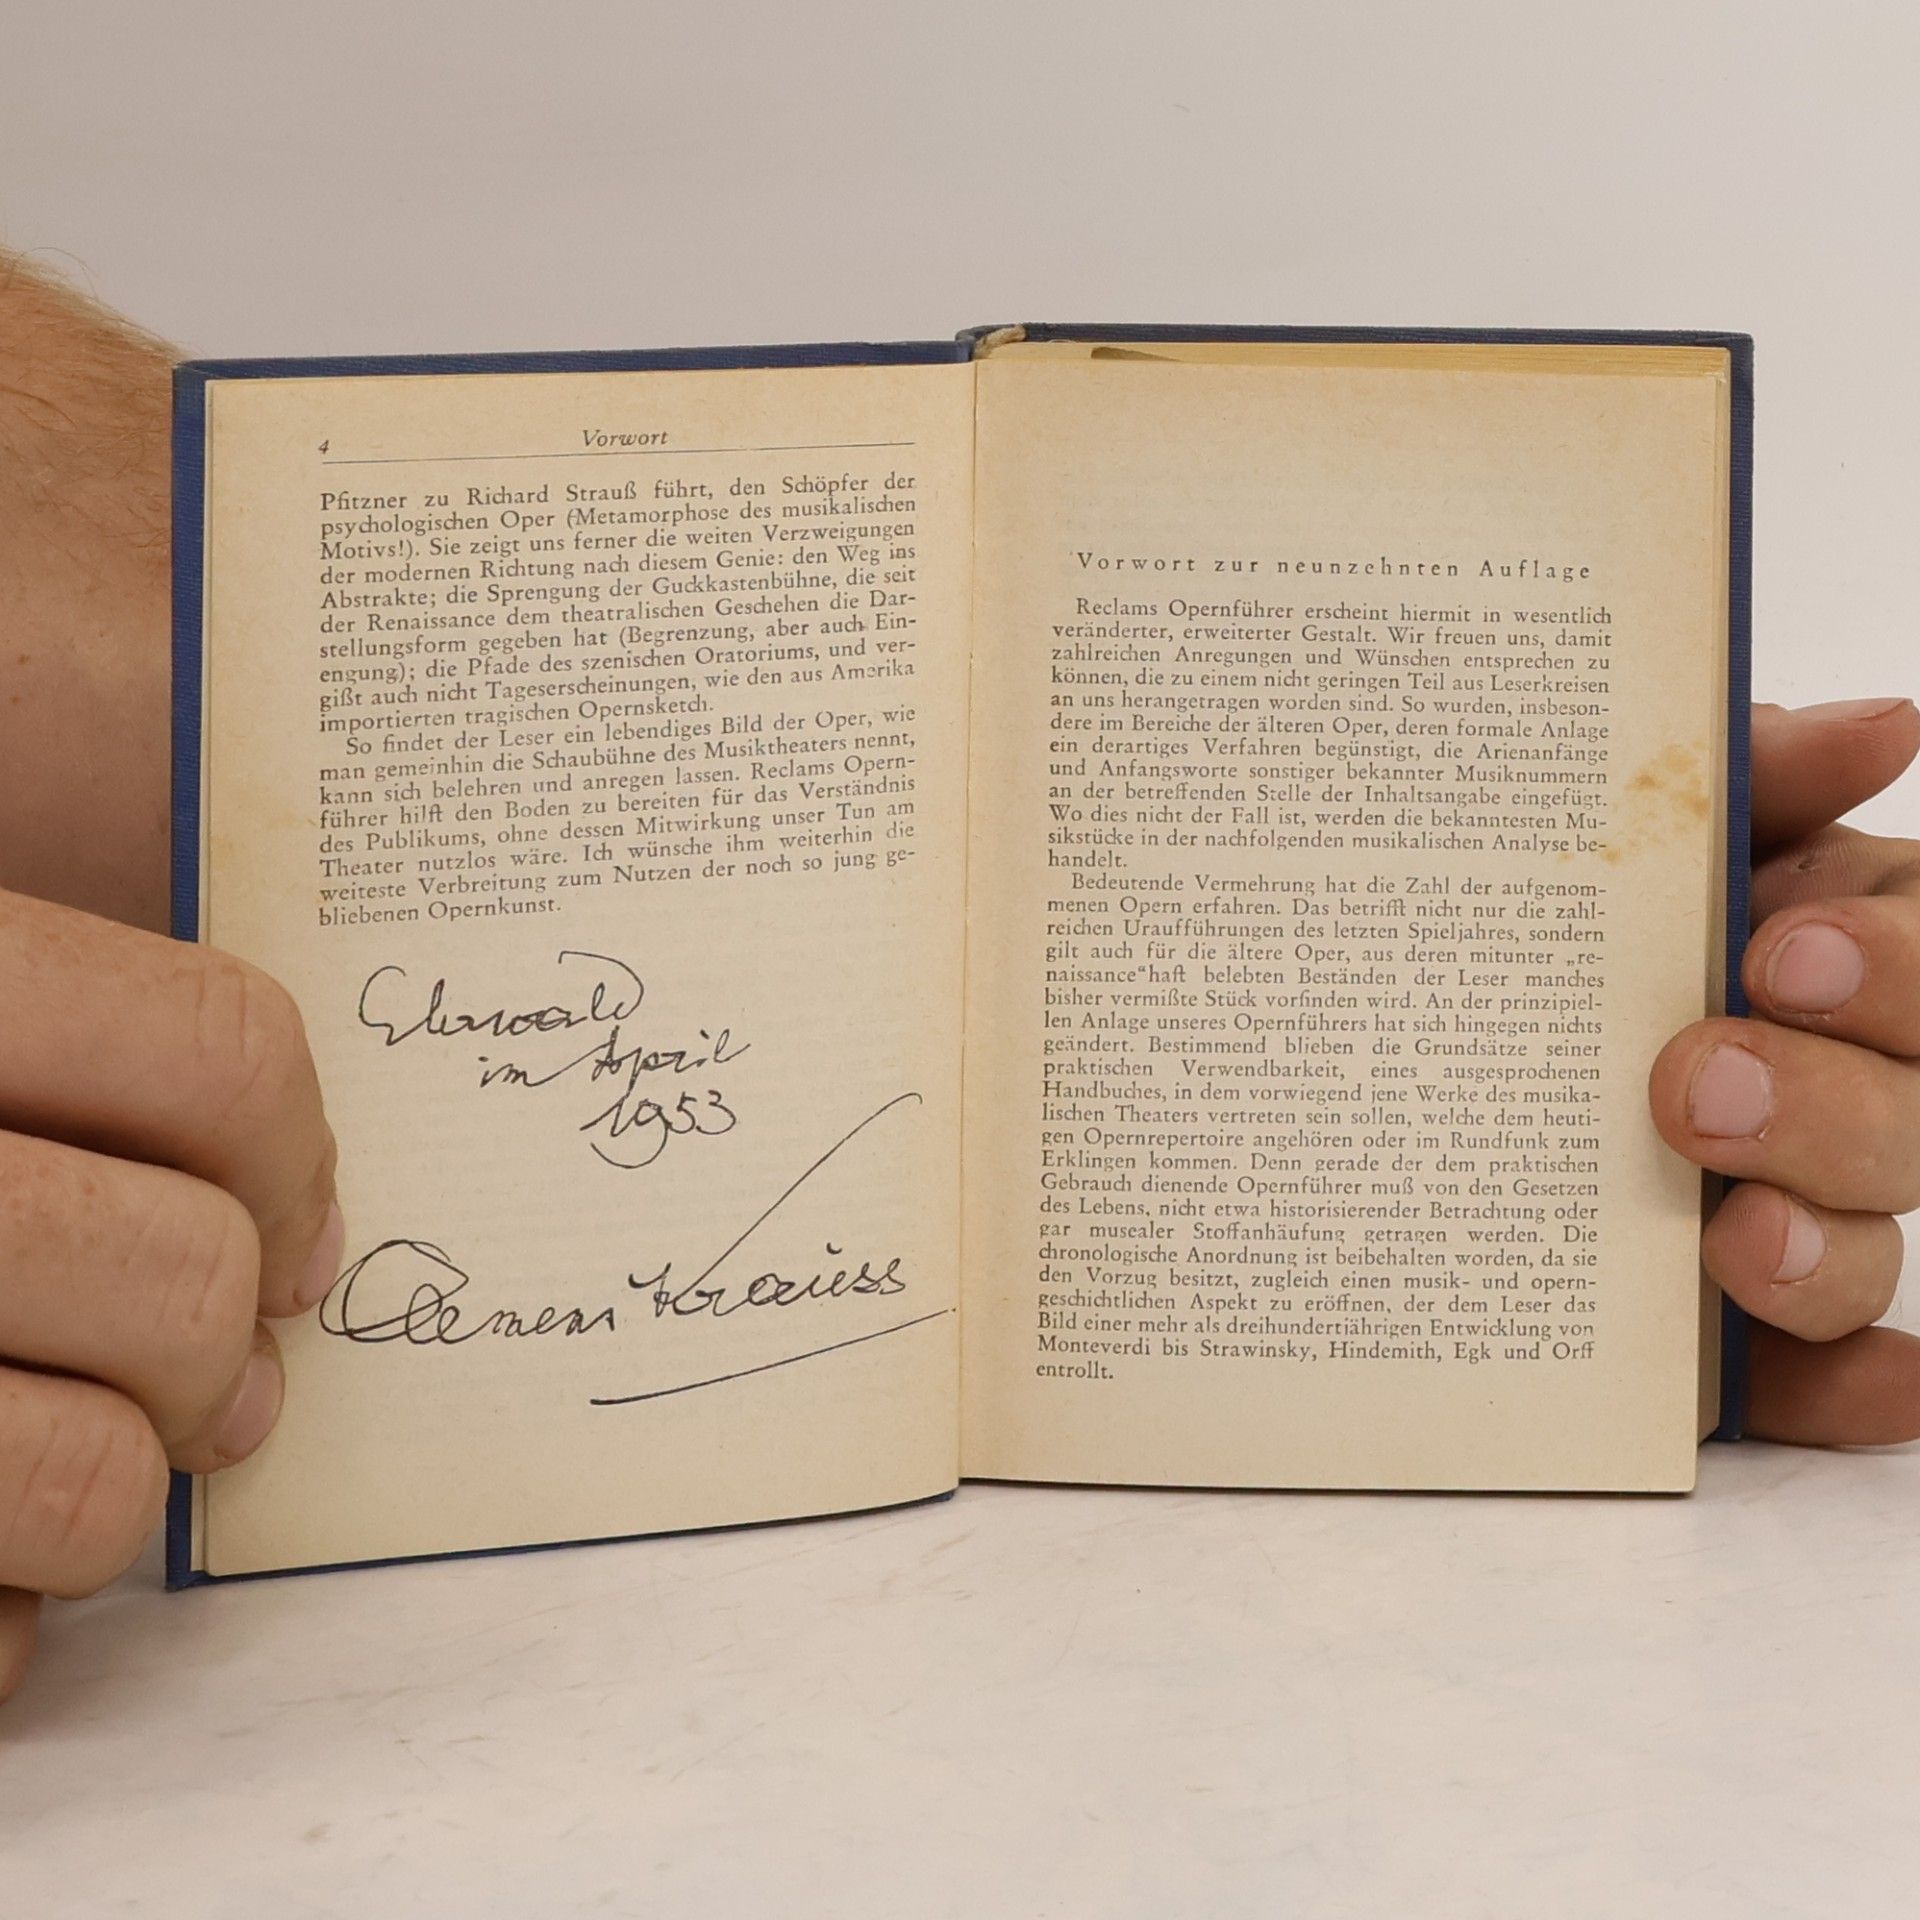 4 Vorwort
Pfitzner zu Richard Strauß führt, den Schöpfer der
psychologischen Oper (Metamorphose des musikalischen
Motivs!). Sie zeigt uns ferner die weiten Verzweigungen
der modernen Richtung nach diesem Genie: den Weg ins
Abstrakte; die Sprengung der Guckkastenbühne, die seit
der Renaissance dem theatralischen Geschehen die Dar-
stellungsform gegeben hat (Begrenzung, aber auch Ein-
engung); die Pfade des szenischen Oratoriums, und ver-
gißt auch nicht Tageserscheinungen, wie den aus Amerika
importierten tragischen Opernsketch.
So findet der Leser ein lebendiges Bild der Oper, wie
man gemeinhin die Schaubühne des Musiktheaters nennt,
kann sich belehren und anregen lassen. Reclams Opern-
führer hilft den Boden zu bereiten für das Verständnis
des Publikums, ohne dessen Mitwirkung unser Tun am
Theater nutzlos wäre. Ich wünsche ihm weiterhin die
weiteste Verbreitung zum Nutzen der noch so jung ge-
bliebenen Opernkunst.
im April
1953
Clemens Krauss
Vorwort zur neunzehnten Auflage
Reclams Opernführer erscheint hiermit in wesentlich
veränderter, erweiterter Gestalt. Wir freuen uns, damit
zahlreichen Anregungen und Wünschen entsprechen zu
können, die zu einem nicht geringen Teil aus Leserkreisen
an uns herangetragen worden sind. So wurden, insbeson-
dere im Bereiche der älteren Oper, deren formale Anlage
ein derartiges Verfahren begünstigt, die Arienanfänge
und Anfangsworte sonstiger bekannter Musiknummern
an der betreffenden Stelle der Inhaltsangabe eingefügt.
Wo dies nicht der Fall ist, werden die bekanntesten Mu-
sikstücke in der nachfolgenden musikalischen Analyse be-
handelt.
Bedeutende Vermehrung hat die Zahl der aufgenom-
menen Opern erfahren. Das betrifft nicht nur die zahl-
reichen Uraufführungen des letzten Spieljahres, sondern
gilt auch für die ältere Oper, aus deren mitunter „re-
naissance“haft belebten Beständen der Leser manches
bisher vermißte Stück vorfinden wird. An der prinzipiel-
len Anlage unseres Opernführers hat sich hingegen nichts
geändert. Bestimmend blieben die Grundsätze seiner
praktischen Verwendbarkeit, eines ausgesprochenen
Handbuches, in dem vorwiegend jene Werke des musika-
lischen Theaters vertreten sein sollen, welche dem heuti-
gen Opernrepertoire angehören oder im Rundfunk zum
Erklingen kommen. Denn gerade der dem praktischen
Gebrauch dienende Opernführer muß von den Gesetzen
des Lebens, nicht etwa historisierender Betrachtung oder
gar musealer Stoffanhäufung getragen werden. Die
chronologische Anordnung ist beibehalten worden, da sie
den Vorzug besitzt, zugleich einen musik- und opern-
geschichtlichen Aspekt zu eröffnen, der dem Leser das
Bild einer mehr als dreihundertjährigen Entwicklung von
Monteverdi bis Strawinsky, Hindemith, Egk und Orff
entrollt.